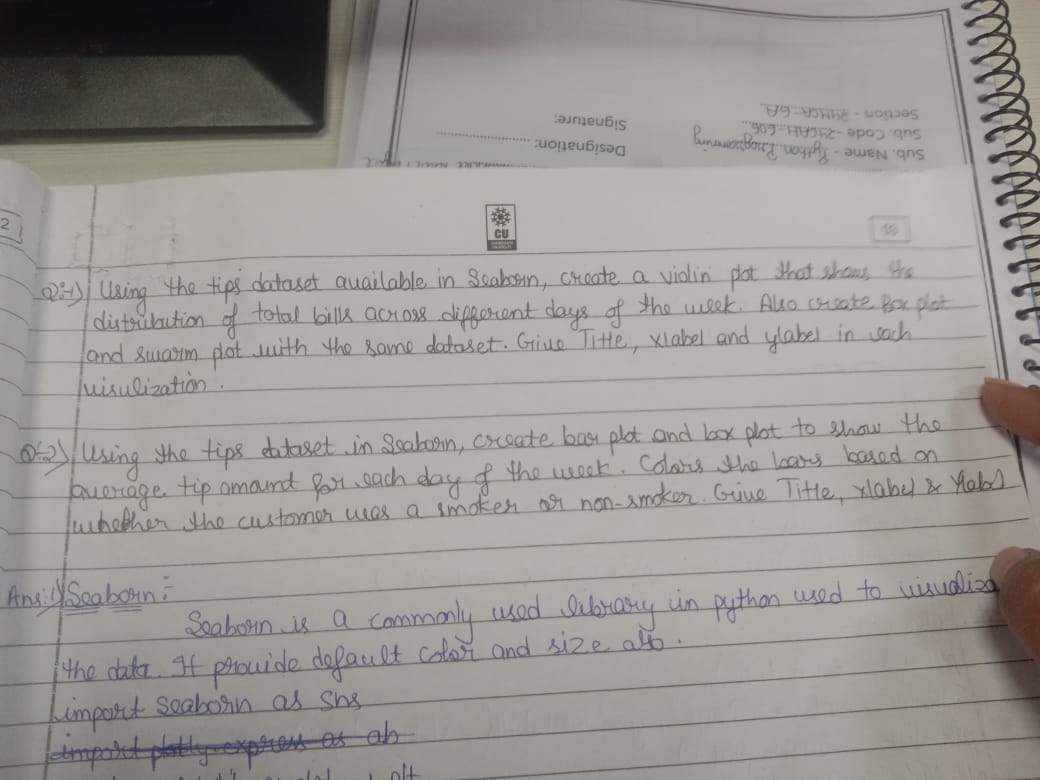 Section - 21MCA-6A
Sub. Code -
Sub. Name - Python Programming
Signature:
Designation:
2
CU
Q:-1) Using the tips dataset available in Seaborn, create a violin plot that shows the
distribution of total bills across different days of the week. Also create Box plot
and swarm plot with the same dataset. Give Title, xlabel and ylabel in each
visulization.
Q:-2) Using the tips dataset in Seaborn, create bar plot and box plot to show the
average tip amount for each day of the week. Colors the bars based on
whether the customer was a smoker or non-smoker. Give Title, xlabel & ylabel
Ans:1) Seaborn:-
Seaborn is a commonly used library in python used to visualiza
the data. It provide default color and size also.
import Seaborn as Sns
import plotly express as ab
plt